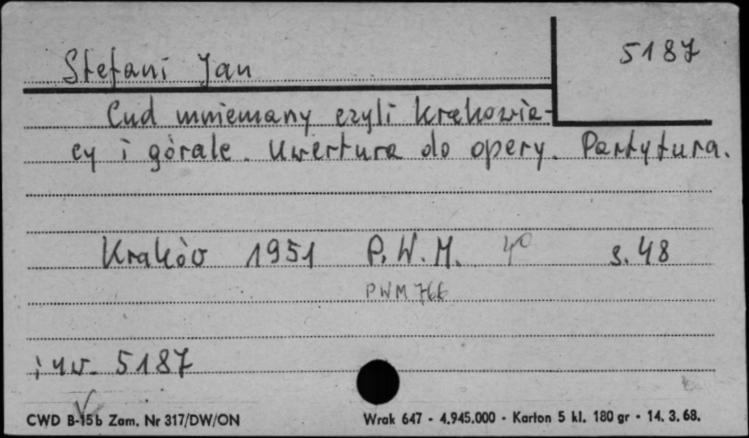 Stefani Jan
5187
Cud mniemany czyli Krakowia-
cy i górale. Uwertura do opery. Partytura.
Kraków 1951 P.W.M. 4° s. 48
PWM 766
inw. 5187
CWD B-15b Zam. Nr 317/DW/ON
Wrak 647 - 4.945.000 - Karton 5 kl. 180 gr - 14. 3. 68.